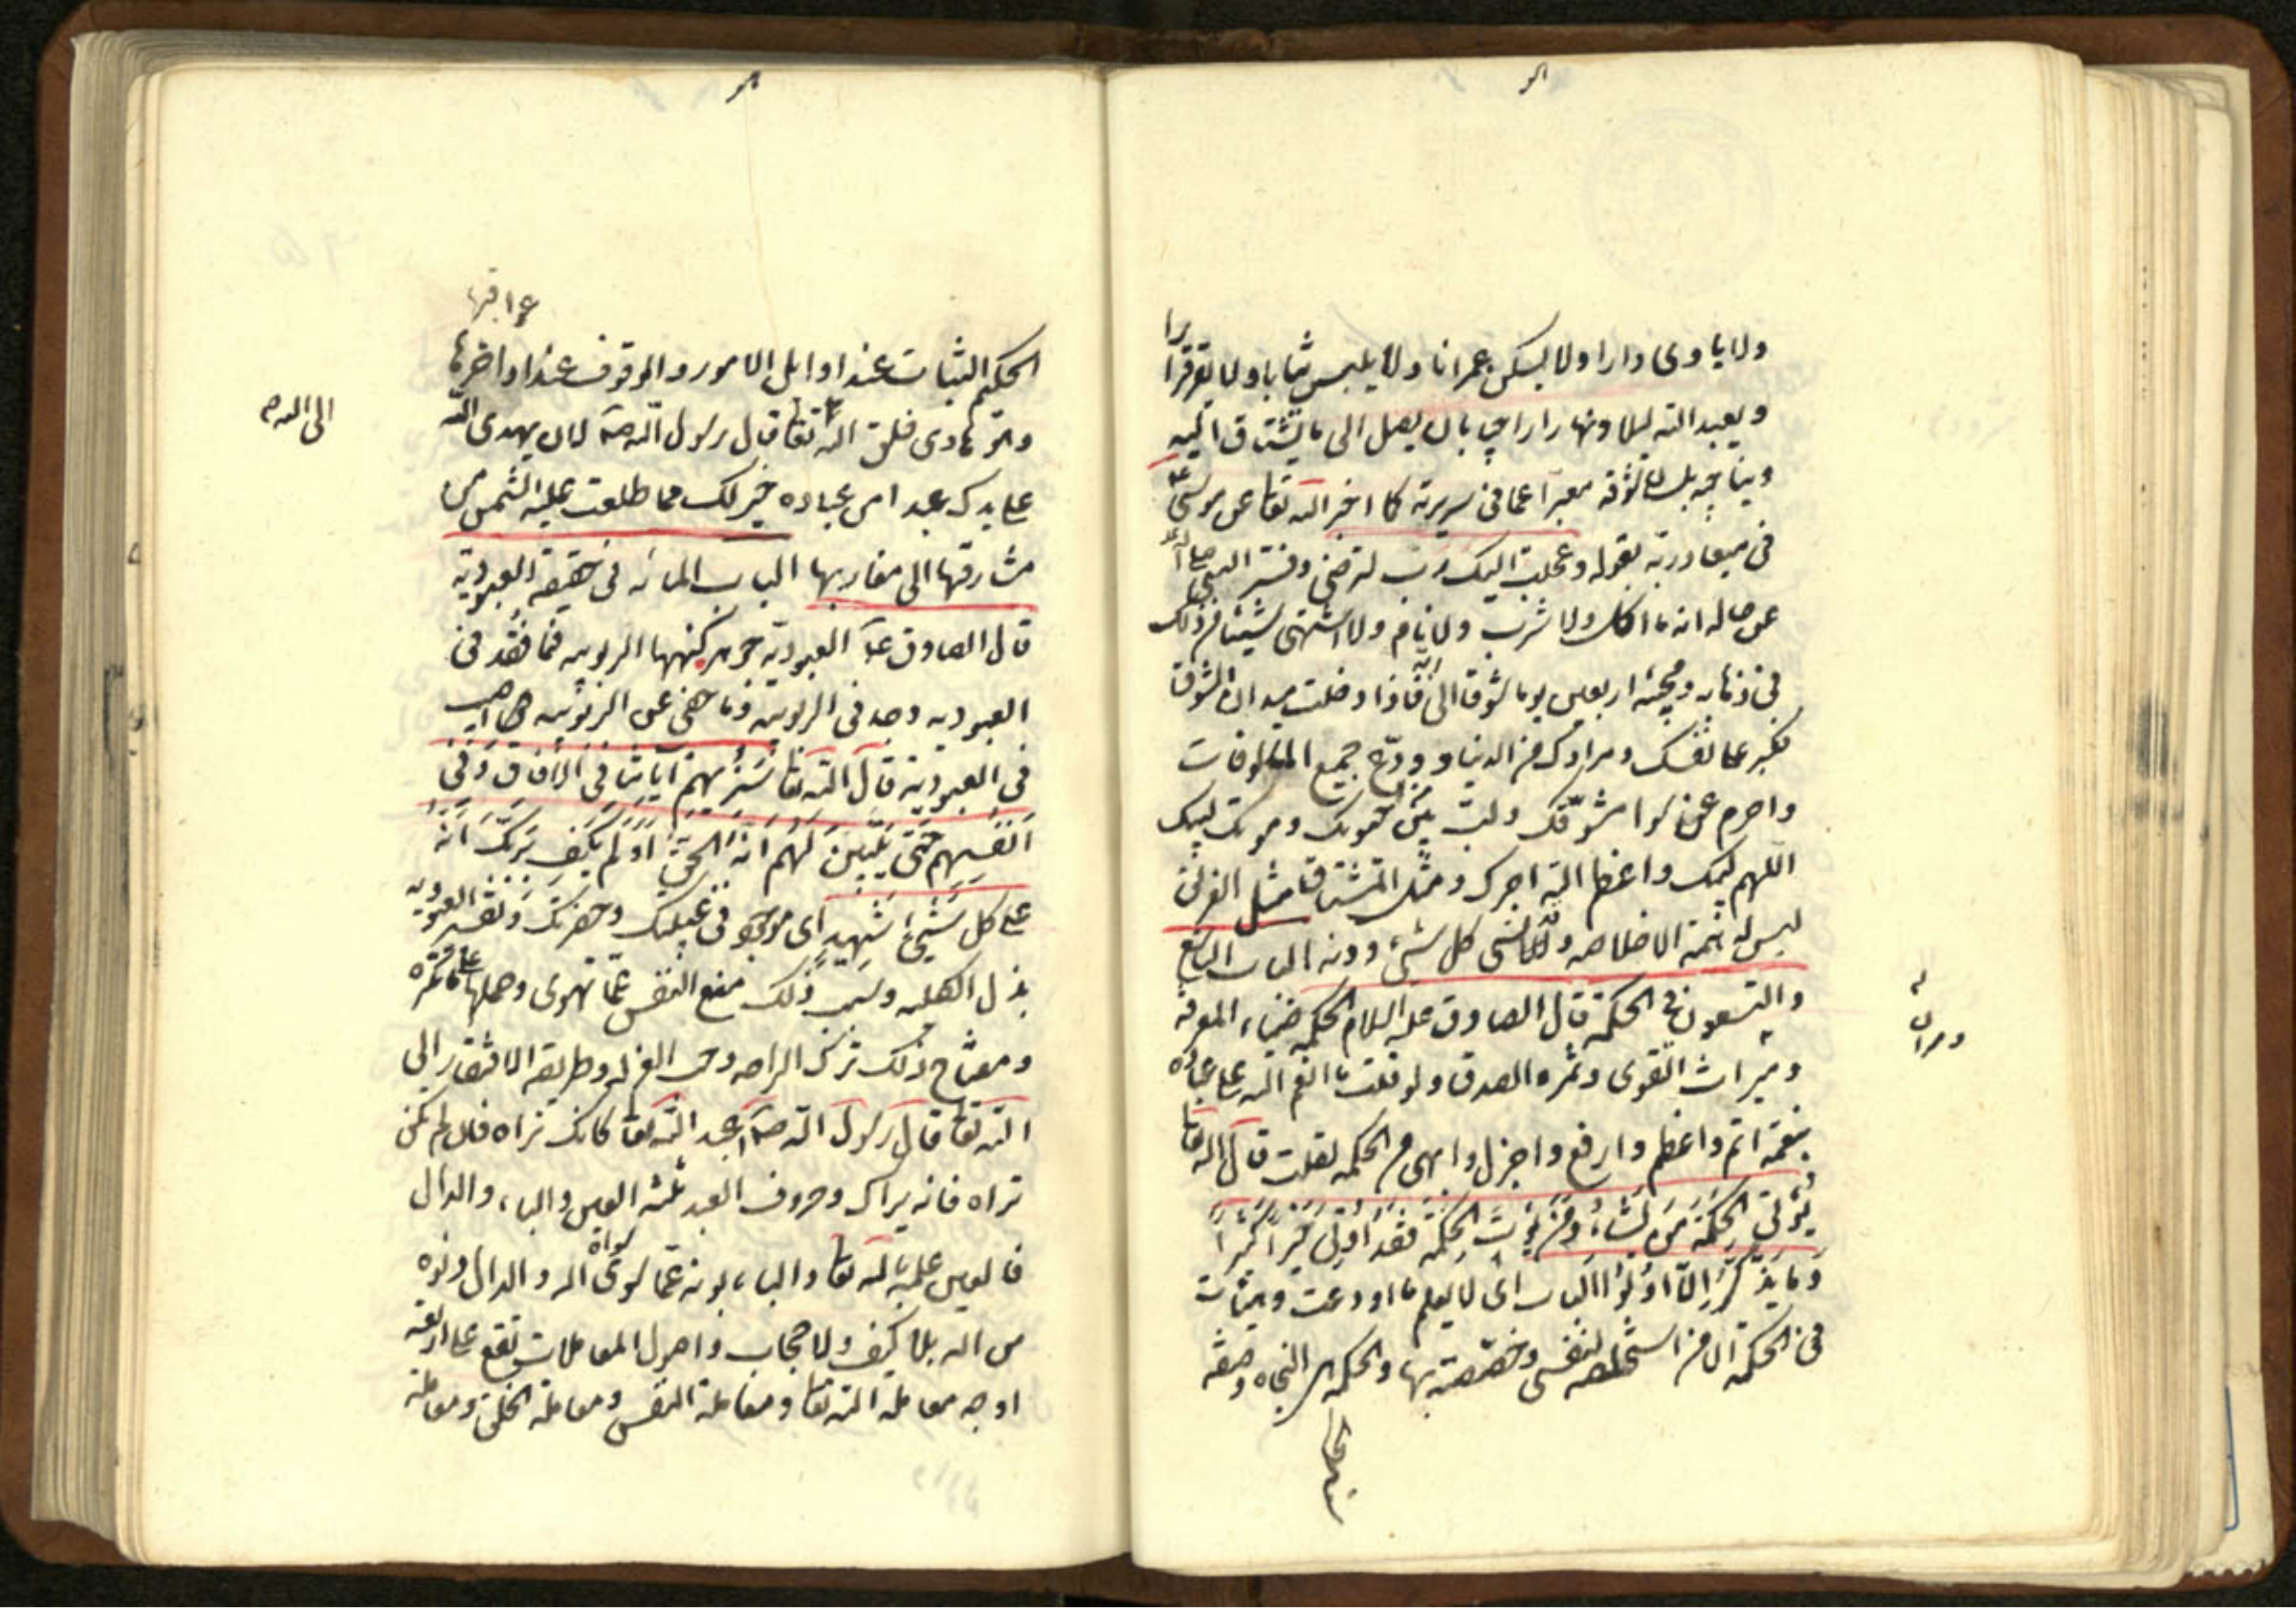 ولا ياوى دارا ولا يسكن عمرانا ولا يلبس ثيابا ولا يقر قرارا
ويعبد الله ليلا ونهارا راجيا بان يصل الى ما يشتاق اليه
ويناجيه بلسان شوقه معبرا عما فى سريرته كما اخبر الله تعا عن موسى ع
فى ميعاد ربه بقوله وعجلت اليك رب لترضى وفسر النبى
عن حاله انه ما اكل ولا شرب ولا نام ولا اشتهى شيئا من ذلك
فى ذهابه ومجيئه اربعين يوما شوقا الى ربه فاذا دخلت ميدان الشوق
فكبر على نفسك ومرادك من الدنيا وودع جميع المالوفات
واحرم عن سوا مشوقك ولب بين حيوتك وموتك لبيك
اللهم لبيك واعظم الله اجرك ومثل المشتاق مثل الغريق
ليس له همة الا خلاصه وقد نسى كل شىء دونه الباب التاسع
والتسعون فى الحكمة قال الصادق عليه السلام الحكمه ضياء المعرفه
وميراث التقوى وثمره الصدق ولو قلت ما انعم الله على عباده
بنعمة اتم واعظم وارفع واجزل وابهى من الحكمه لقلت قال الله تعا
يؤتى الحكمة من يشاء ومن يؤت الحكمة فقد اوتى خيرا كثيرا
وما يذكر الا اولوا الالباب اى لا يعلم ما اودعت وهيات
فى الحكمة الا من استخلصه لنفسى وخصصته بها والحكمه هى النجاه وصفه
الحكيم الثبات عند اوايل الامور والوقوف عند اواخرها
عواقبها
وهو هادى خلق الله تعا قال رسول الله صه لان يهدى الله
على يدك عبدا من عباده خير لك مما طلعت عليه الشمس من
مشارقها الى مغاربها الباب المائه فى حقيقة العبودية
قال الصادق ع العبودية جوهر كنهها الربوبيه فما فقد فى
العبوديه وجد فى الربوبيه وما خفى عن الربوبيه اصيب
فى العبودية قال الله تعا سنريهم آياتنا فى الآفاق وفى
انفسهم حتى يتبين لهم انه الحق اولم يكف بربك انه
على كل شىء شهيد اى موجود فى غيبتك وحضرتك وتفسير العبوديه
بذل الكليه وسبب ذلك منع النفس عما تهوى وحملها على ما تكره
ومفتاح ذلك ترك الراحه وحب العزله وطريقه الافتقار الى
الله تعا قال رسول الله صه اعبد الله تعا كانك تراه فان لم تكن
تراه فانه يراك وحروف العبد ثلثه العين والباء والدال
فالعين علمه بالله تعا والباء بونه عما سواه والدال دنوه
من الله بلا كيف ولا حجاب واصول المعاملات تقع على اربعه
اوجه معاملة الله تعا ومعاملة النفس ومعاملة الخلق ومعاملة